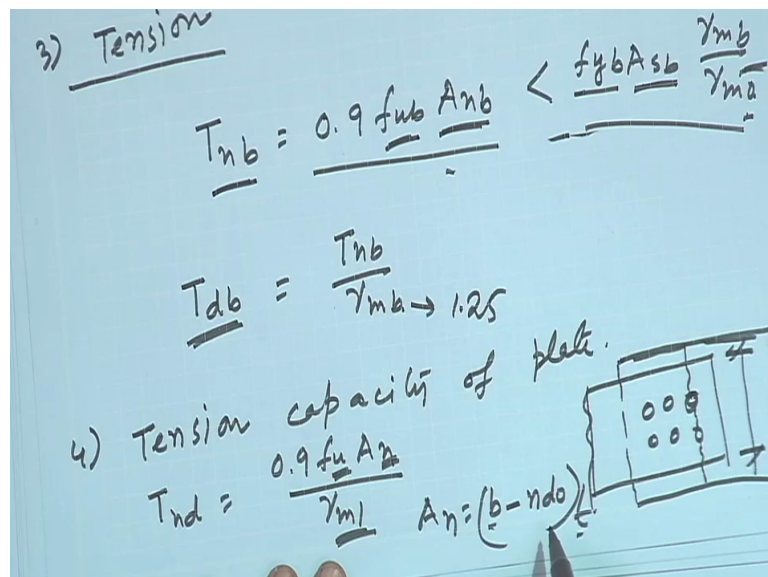 3) Tension
Tnb = 0.9 fub Anb < fyb Asb γmb / γma
Tdb = Tnb / γmb → 1.25
4) Tension capacity of plate.
Tnd = 0.9 fu An / γm1 An = (b - ndo) t